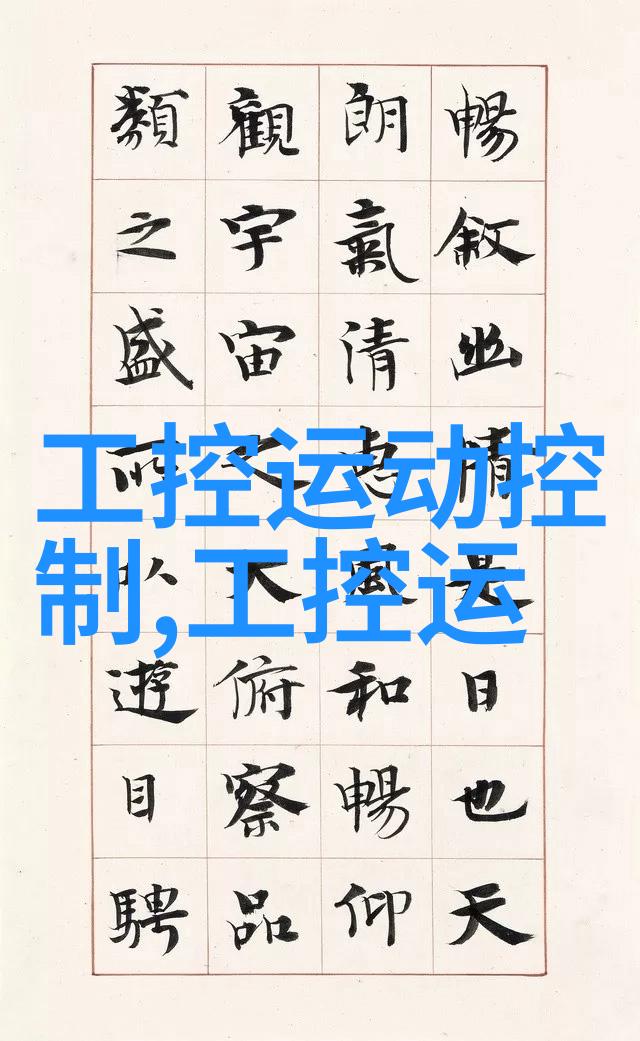 暢敘幽情是日也天
朗氣清惠風和暢仰
觀宇宙之大俯察品
類之盛所以遊目騁
工控运动控
制,工控运